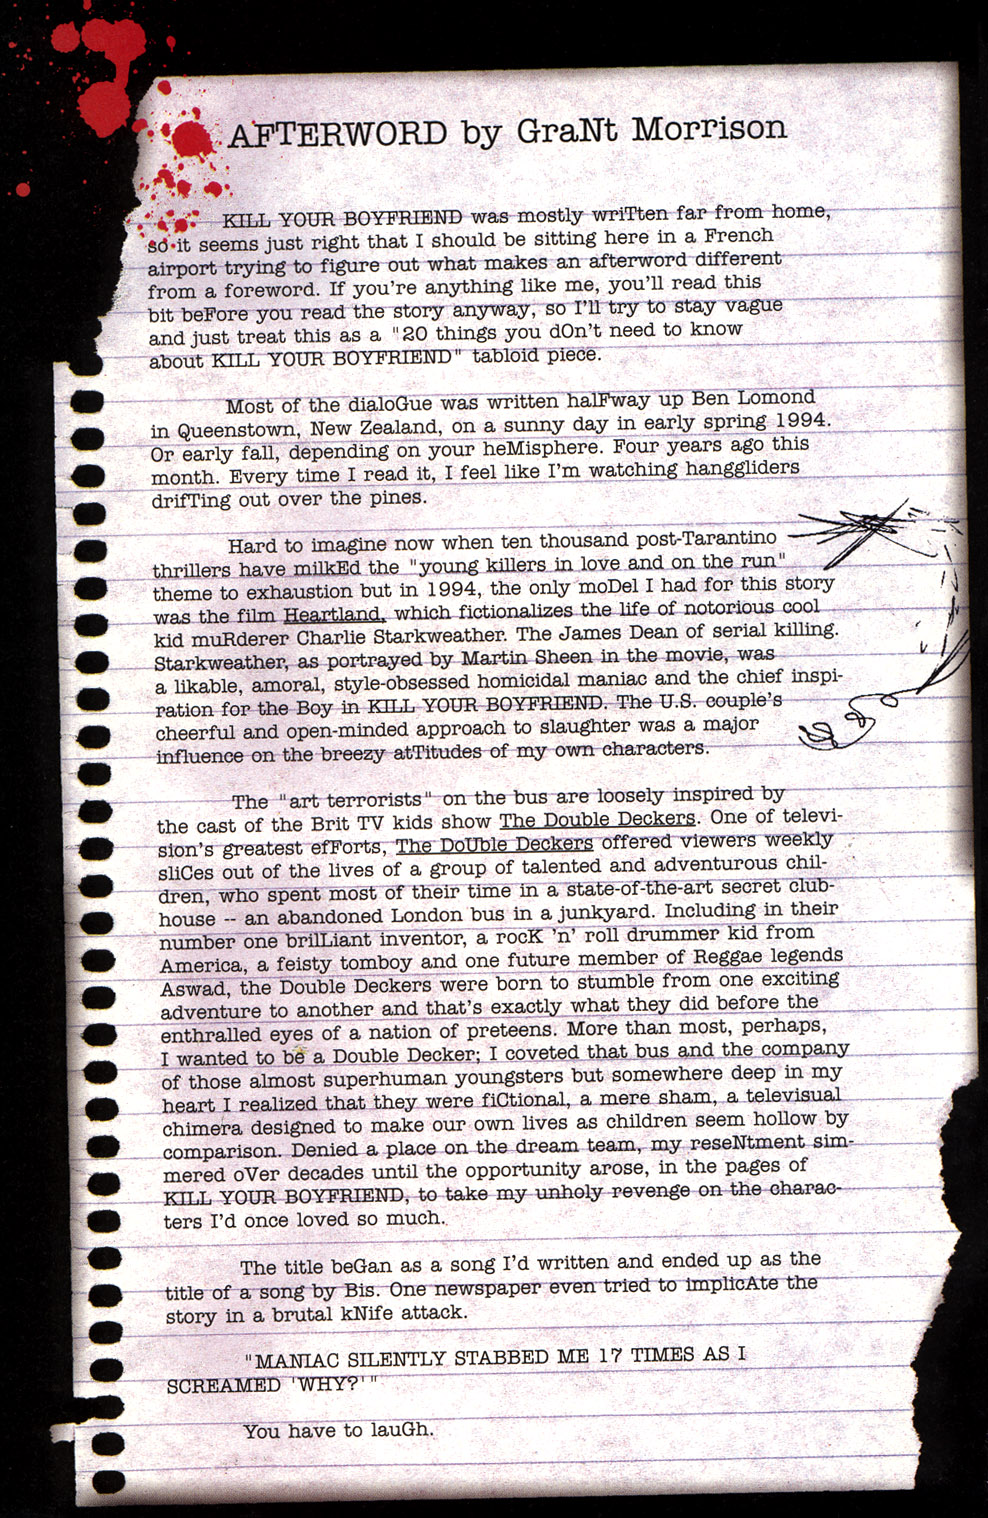 AFTERWORD by GraNt Morrison
KILL YOUR BOYFRIEND was mostly wriTten far from home,
so it seems just right that I should be sitting here in a French
airport trying to figure out what makes an afterword different
from a foreword. If you're anything like me, you'll read this
bit beFore you read the story anyway, so I'll try to stay vague
and just treat this as a "20 things you dOn't need to know
about KILL YOUR BOYFRIEND" tabloid piece.
Most of the dialoGue was written halFway up Ben Lomond
in Queenstown, New Zealand, on a sunny day in early spring 1994.
Or early fall, depending on your heMisphere. Four years ago this
month. Every time I read it, I feel like I'm watching hanggliders
drifTing out over the pines.
Hard to imagine now when ten thousand post-Tarantino
thrillers have milkEd the "young killers in love and on the run"
theme to exhaustion but in 1994, the only moDel I had for this story
was the film Heartland, which fictionalizes the life of notorious cool
kid muRderer Charlie Starkweather. The James Dean of serial killing.
Starkweather, as portrayed by Martin Sheen in the movie, was
a likable, amoral, style-obsessed homicidal maniac and the chief inspi-
ration for the Boy in KILL YOUR BOYFRIEND. The U.S. couple's
cheerful and open-minded approach to slaughter was a major
influence on the breezy atTitudes of my own characters.
The "art terrorists" on the bus are loosely inspired by
the cast of the Brit TV kids show The Double Deckers. One of televi-
sion's greatest efForts, The DoUble Deckers offered viewers weekly
sliCes out of the lives of a group of talented and adventurous chil-
dren, who spent most of their time in a state-of-the-art secret club-
house -- an abandoned London bus in a junkyard. Including in their
number one brilLiant inventor, a rocK 'n' roll drummer kid from
America, a feisty tomboy and one future member of Reggae legends
Aswad, the Double Deckers were born to stumble from one exciting
adventure to another and that's exactly what they did before the
enthralled eyes of a nation of preteens. More than most, perhaps,
I wanted to be a Double Decker; I coveted that bus and the company
of those almost superhuman youngsters but somewhere deep in my
heart I realized that they were fiCtional, a mere sham, a televisual
chimera designed to make our own lives as children seem hollow by
comparison. Denied a place on the dream team, my reseNtment sim-
mered oVer decades until the opportunity arose, in the pages of
KILL YOUR BOYFRIEND, to take my unholy revenge on the charac-
ters I'd once loved so much.
The title beGan as a song I'd written and ended up as the
title of a song by Bis. One newspaper even tried to implicAte the
story in a brutal kNife attack.
"MANIAC SILENTLY STABBED ME 17 TIMES AS I
SCREAMED 'WHY?'"
You have to lauGh.